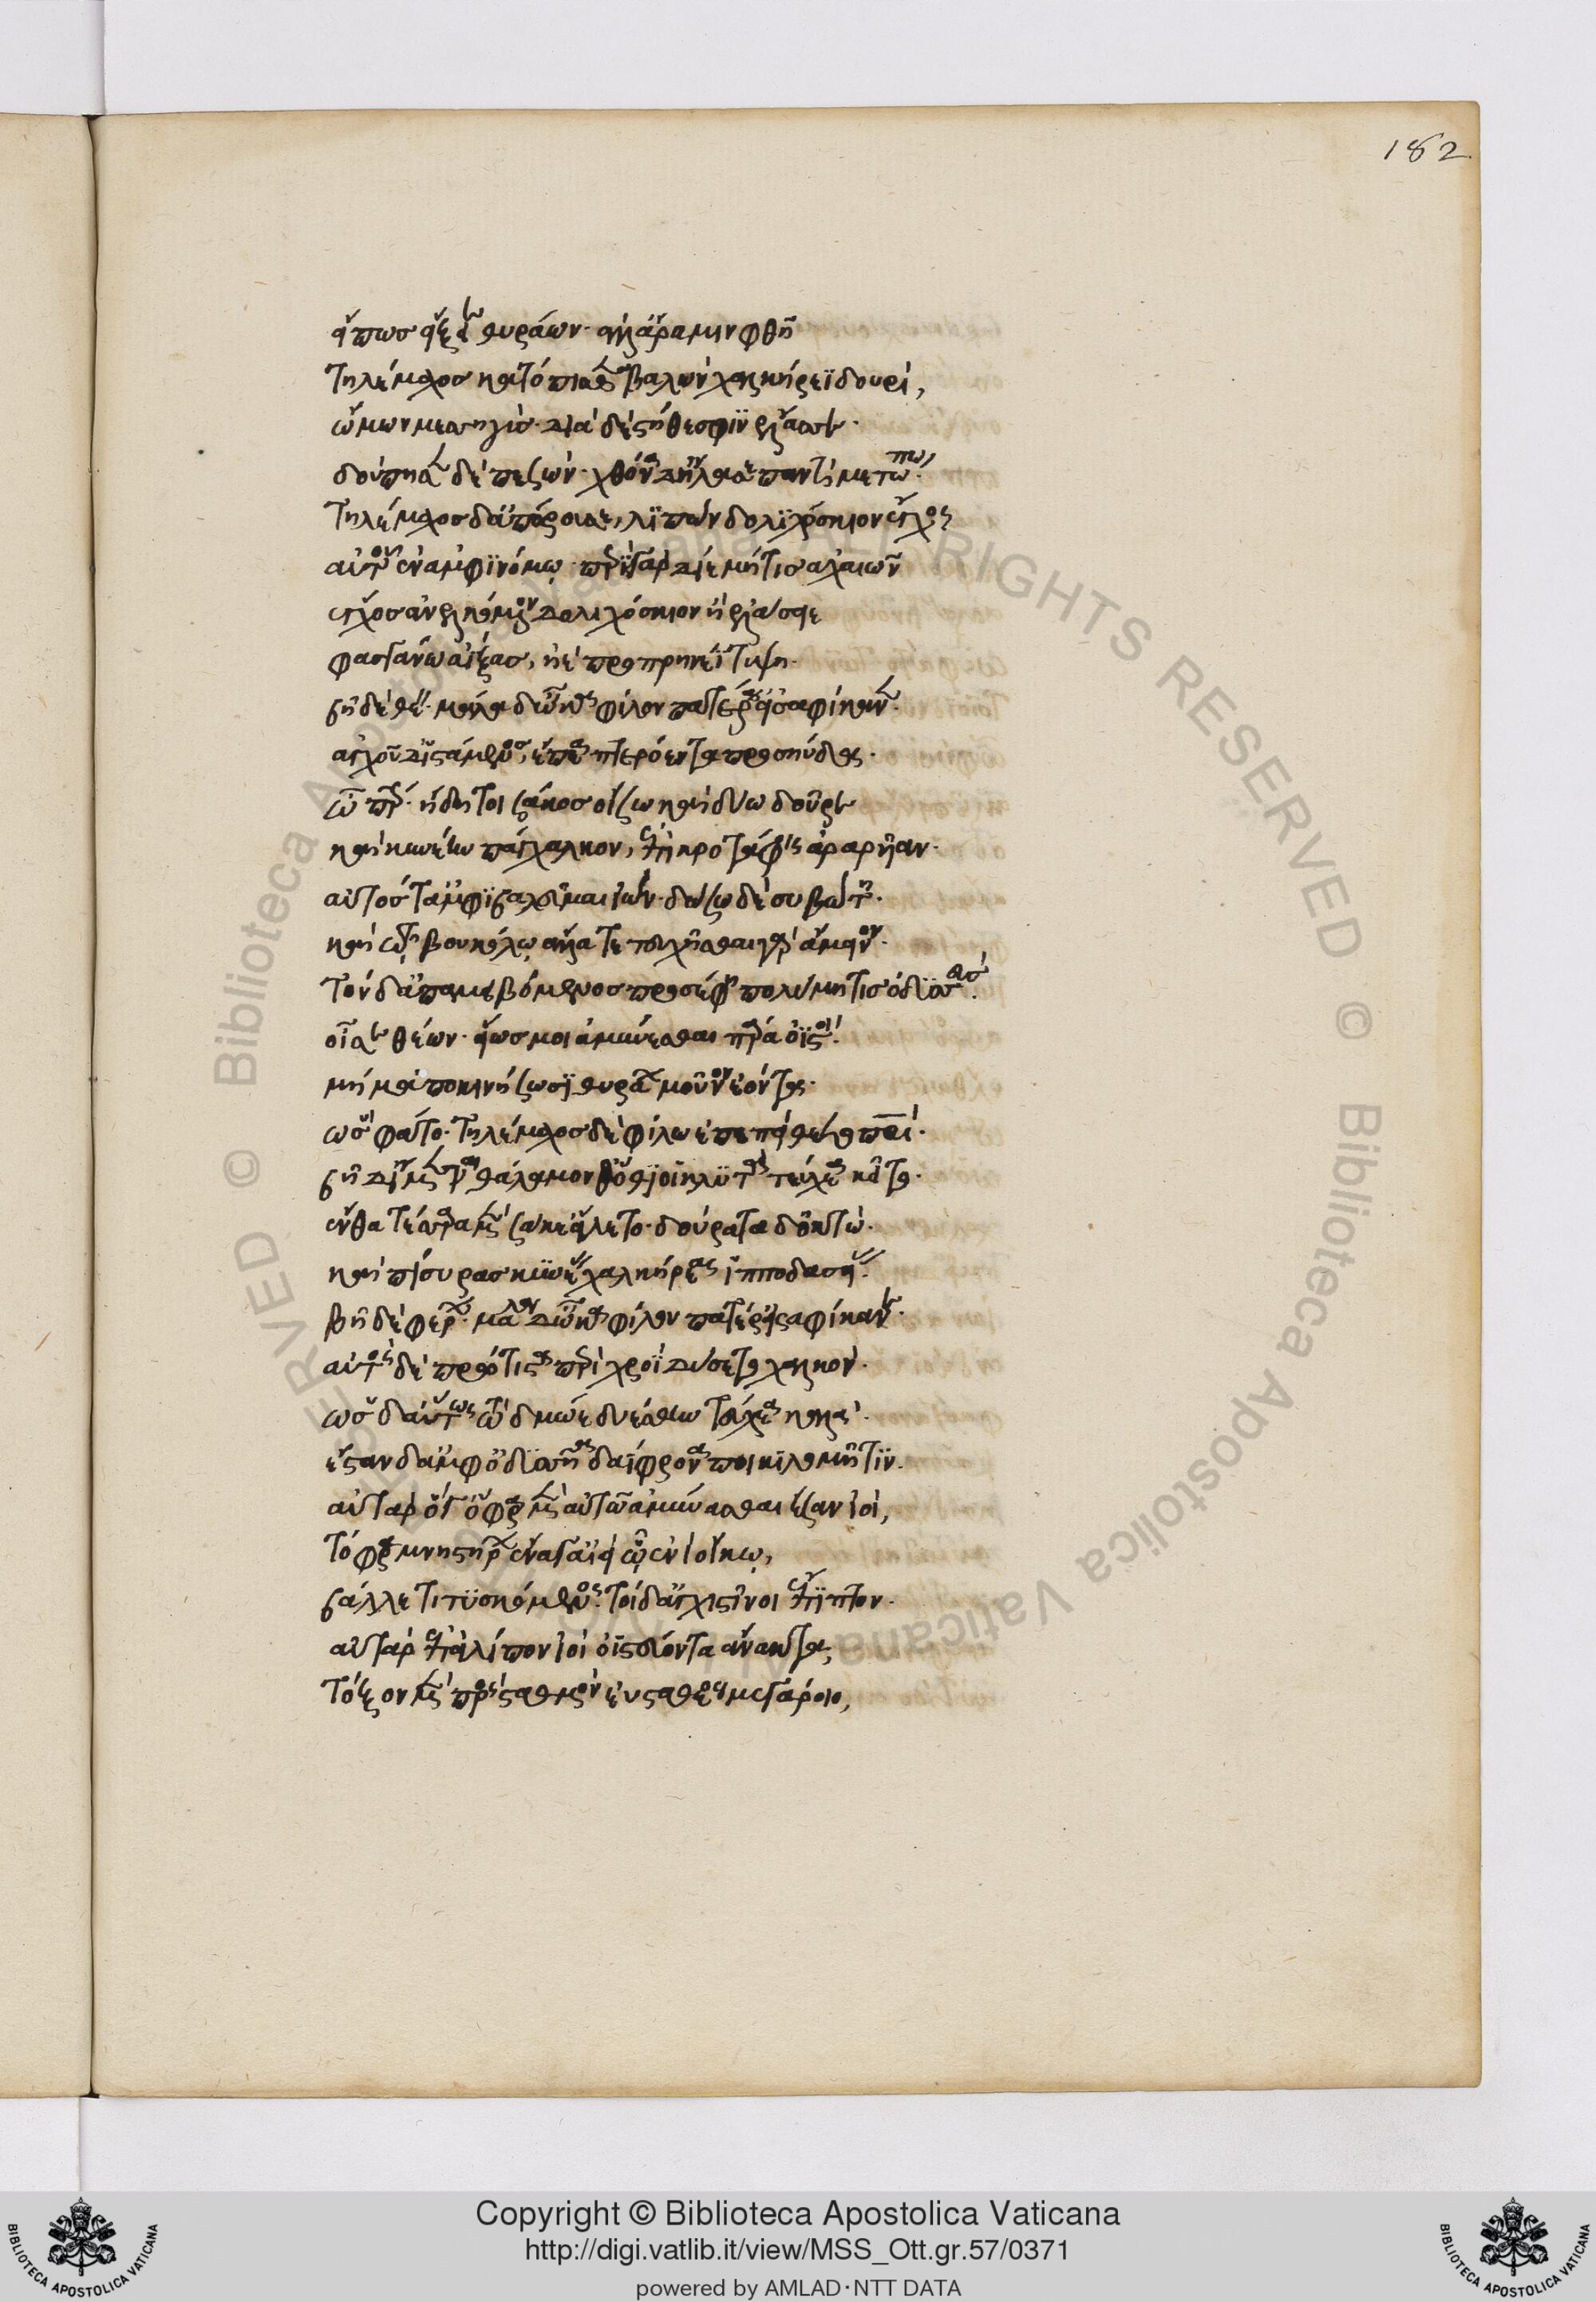 182
εἴ πως οἱ εἴξειε θυράων· ἀλλ' ἄρα μιν φθῆ
Τηλέμαχος κατόπισθε βαλὼν χαλκήρεϊ δουρί,
ὤμων μεσσηγὺς· διὰ δὲ στήθεσφιν ἔλασσε·
δούπησε δὲ πεσών· χθόνα δ' ἤλασε παντὶ μετώπω·
Τηλέμαχος δ' ἀπόρουσε, λιπὼν δολιχόσκιον ἔγχος
αὐτοῦ ἐν ἀμφινόμῳ· περὶ γὰρ δίε μή τις ἀχαιῶν
ἔγχος ἀνελκόμενον δολιχόσκιον ἢ ἐλάσειε
φασγάνω ἀΐξας, ἠὲ προπρηνέϊ τύψη·
βῆ δὲ θέειν· μάλα δ' ὦκα φίλον πατέρ' εἰσαφίκανε·
ἀγχοῦ δ' ἱστάμενος, ἔπεα πτερόεντα προσηύδα·
ὦ πάτερ· ἤδη τοι σάκος οἴσω καὶ δύω δοῦρε
καὶ κυνέην πάγχαλκον, ἐπὶ κροτάφοις ἀραρυῖαν·
αὐτός τ' ἀμφιβαλεῦμαι ἰών· δώσω δὲ συβώτη·
καὶ τῷ βουκόλῳ ἄλλα· τετευχῆσθαι γὰρ ἄμεινον·
Τὸν δ' ἀπαμειβόμενος προσέφη πολύμητις ὀδυσσεύς·
οἶσε θέων· εἵως μοι ἀμύνεσθαι πάρα ὀϊστοί·
μή μ' ἀποκινήσωσι θυράων μοῦνον ἐόντα·
ὣς φάτο· Τηλέμαχος δὲ φίλω ἐπεπείθετο πατρί·
βῆ δ' ἴμεναι θάλαμον δ' ὅθι οἱ κλυτὰ τεύχεα κεῖτο·
ἔνθεν τέσσαρα μὲν σάκε' εἵλετο· δούρατα δ' ὀκτώ·
καὶ πίσυρας κυνέας χαλκήρεας ἱπποδασείας·
βῆ δὲ φέρων· μάλα δ' ὦκα φίλον πατέρ' εἰσαφίκανε·
αὐτὸς δὲ πρώτιστα περὶ χροῒ δύσετο χαλκόν·
ὣς δ' αὔτως τὼ δμῶε δυέσθην τεύχεα καλά·
ἔσταν δ' ἀμφ' ὀδυσῆα δαΐφρονα ποικιλομήτιν·
αὐτὰρ ὅγ' ὄφρα μὲν αὐτῶ ἀμύνασθαι ἔσαν ἰοί,
τόφρα μνηστήρων ἕνα γ' αἰεὶ ᾧ ἐνὶ οἴκῳ,
βάλλε τιτυσκόμενος· τοὶ δ' ἀγχιστῖνοι ἔπιπτον·
αὐτὰρ ἐπεὶ λίπον ἰοὶ ὀϊστεύοντα ἄνακτα,
τόξον μὲν πρὸς σταθμὸν ἐϋσταθέος μεγάροιο,
Copyright © Biblioteca Apostolica Vaticana
http://digi.vatlib.it/view/MSS_Ott.gr.57/0371
powered by AMLAD·NTT DATA